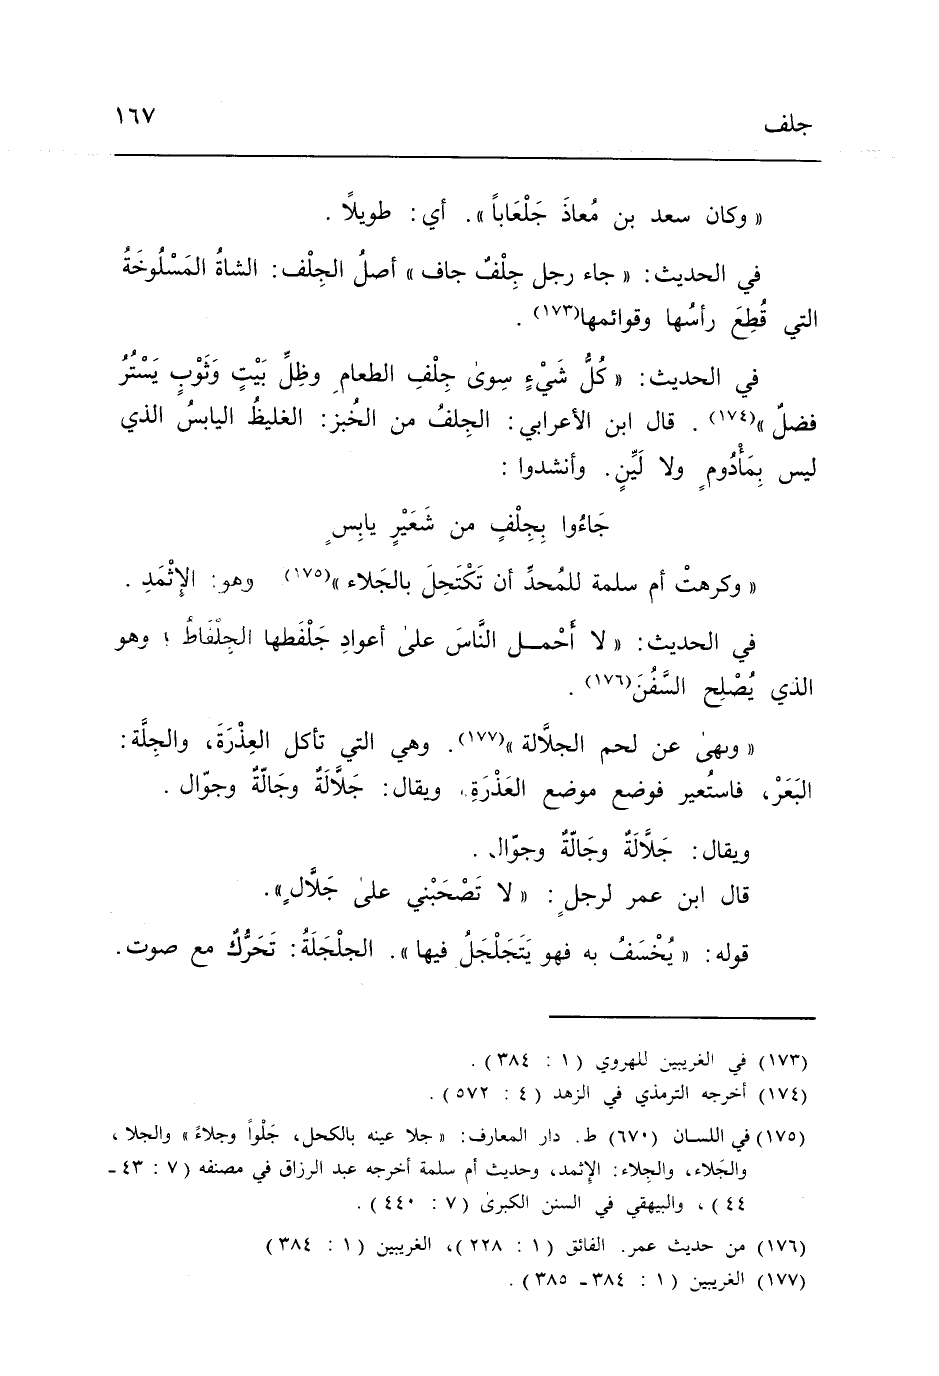 جلف ١٦٧
« وكان سعد بن مُعاذَ جَلْعَاباً ». أي : طويلاً .
في الحديث : « جاء رجل جِلْفٌ جاف » أصلُ الجِلْف : الشاةُ المَسْلُوخَةُ
التي قُطِعَ رأسُها وقوائمها(١٧٣) .
في الحديث : « كُلُّ شَيْءٍ سِوىٰ جِلْفِ الطعامِ وظِلِّ بَيْتٍ وَثَوْبٍ يَسْتُرُ
فضلٌ »(١٧٤) . قال ابن الأعرابي : الجِلفُ من الخُبز : الغليظُ اليابسُ الذي
ليس بِمَأْدُومٍ ولا لَيِّنٍ. وأنشدوا :
جَاءُوا بِجِلْفٍ من شَعَيْرٍ يابِسٍ
« وكرهتْ أم سلمة للمُحدِّ أن تَكْتَحِلَ بالجَلاء »(١٧٥) وهو : الإِثْمَدِ .
في الحديث : « لا أَحْمــل النَّاسَ علىٰ أعوادِ جَلْفَطها الجِلْفَاطُ ؛ وهو
الذي يُصْلِح السَّفُنَ(١٧٦) .
« ونهىٰ عن لحم الجلاَّلة »(١٧٧). وهي التي تأكل العِذْرَةَ، والجِلَّة :
البَعَرْ، فاستُعير فوضع موضع العَذْرَةِ، ويقال : جَلاَّلَةٌ وجَالّةٌ وجوّال .
ويقال : جَلاَّلَةٌ وجَالّةٌ وجوّال .
قال ابن عمر لرجلٍ : « لا تَصْحَبْني علىٰ جَلاَّلٍ ».
قوله : « يُخْسَفُ به فهو يَتَجَلْجَلُ فيها ». الجلْجَلَةُ : تَحَرُّكٌ مع صوت .
(١٧٣) في الغريبين للهروي ( ١ : ٣٨٤ ) .
(١٧٤) أخرجه الترمذي في الزهد ( ٤ : ٥٧٢ ) .
(١٧٥) في اللسان (٦٧٠) ط. دار المعارف : « جلا عينه بالكحل، جَلْواً وجلاءً » والجلا ،
والجَلاء، والجِلاء : الإثمد، وحديث أم سلمة أخرجه عبد الرزاق في مصنفه ( ٧ : ٤٣ ـ
٤٤ ) ، والبيهقي في السنن الكبرىٰ ( ٧ : ٤٤٠ ) .
(١٧٦) من حديث عمر. الفائق ( ١ : ٢٢٨ )، الغريبين ( ١ : ٣٨٤ )
(١٧٧) الغريبين ( ١ : ٣٨٤ ـ ٣٨٥ ) .